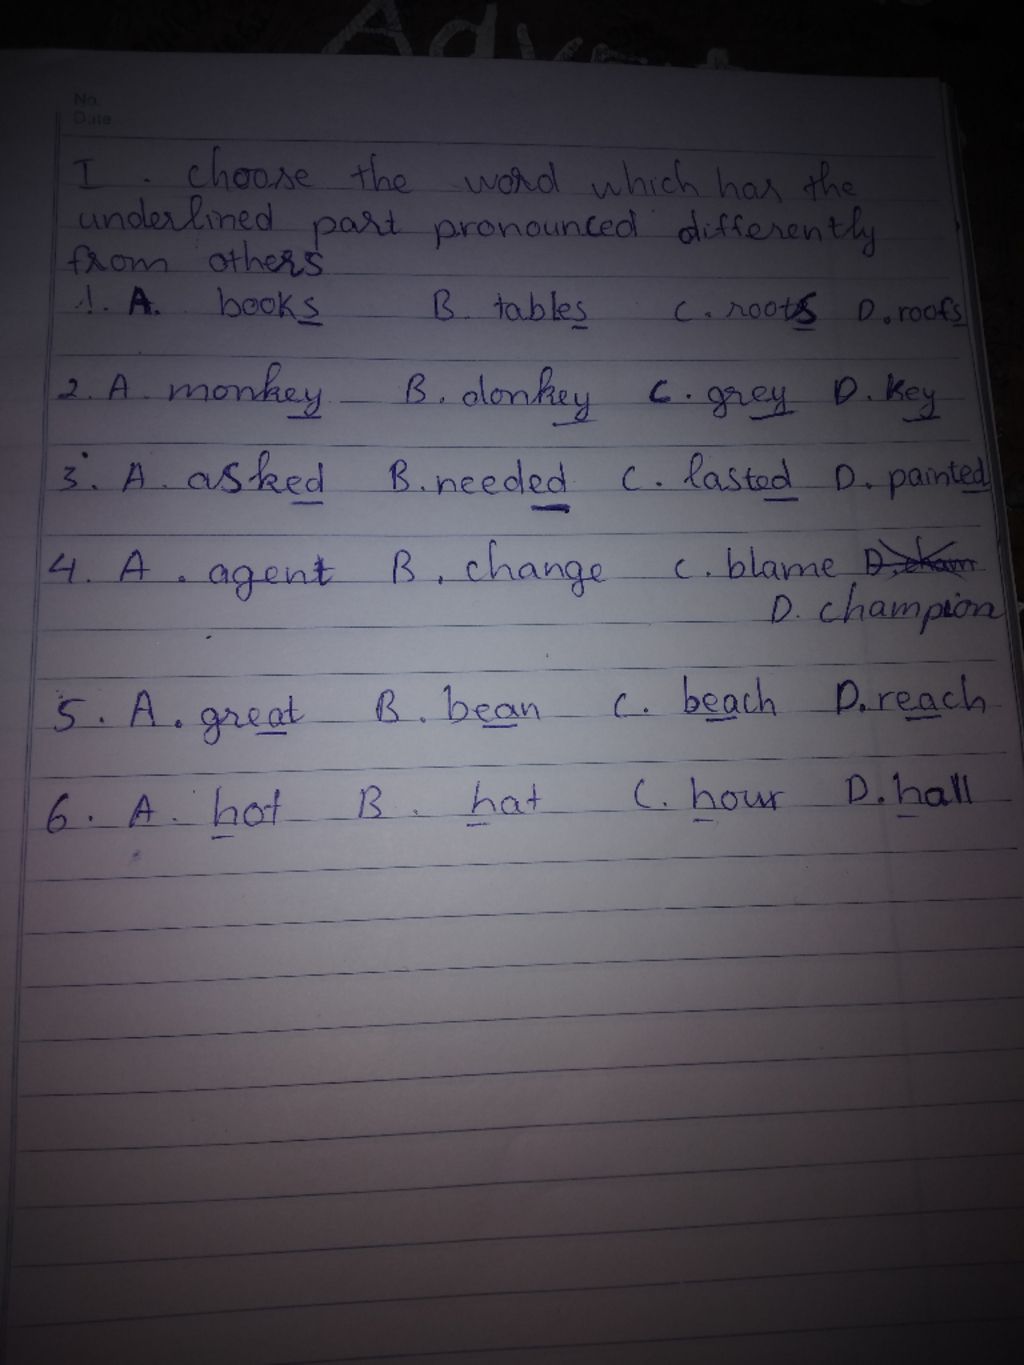 Adv
No.
Date
I . choose the word which has the
underlined part pronounced differently
from others
1. A. books B. tables C. roots D. roofs
2. A. monkey B. donkey C. grey D. key
3. A. asked B. needed C. lasted D. painted
4. A. agent B. change C. blame D. cham
D. champion
5. A. great B. bean C. beach D. reach
6. A. hot B. hat C. hour D. hall